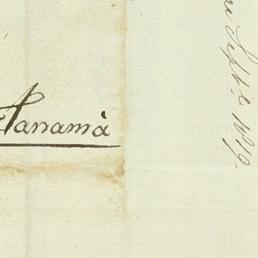 Panamà
Sept.e 1819.